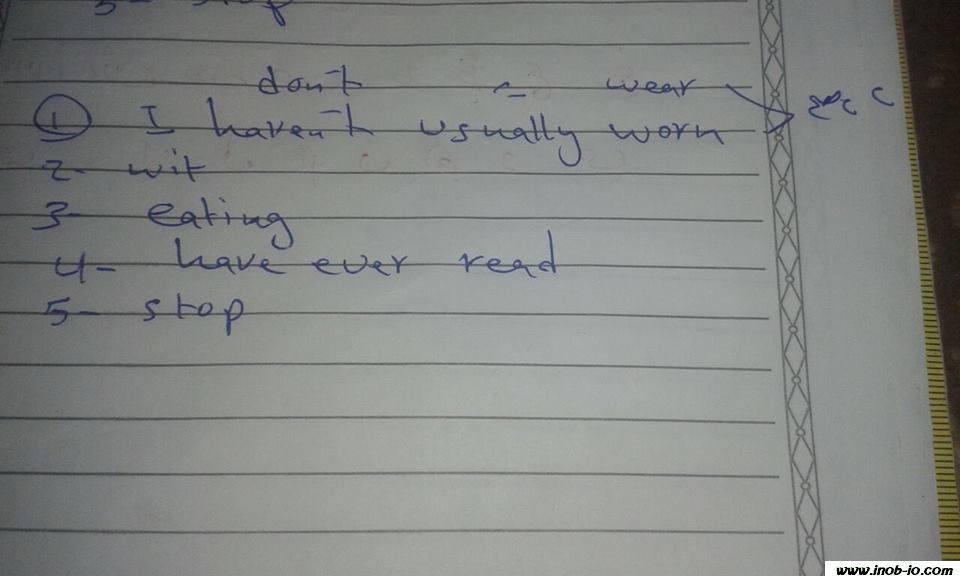 5- stop
don't wear
① I haven't usually worn
2- wit
3- eating
4- have ever read
5- stop
www.inob-io.com